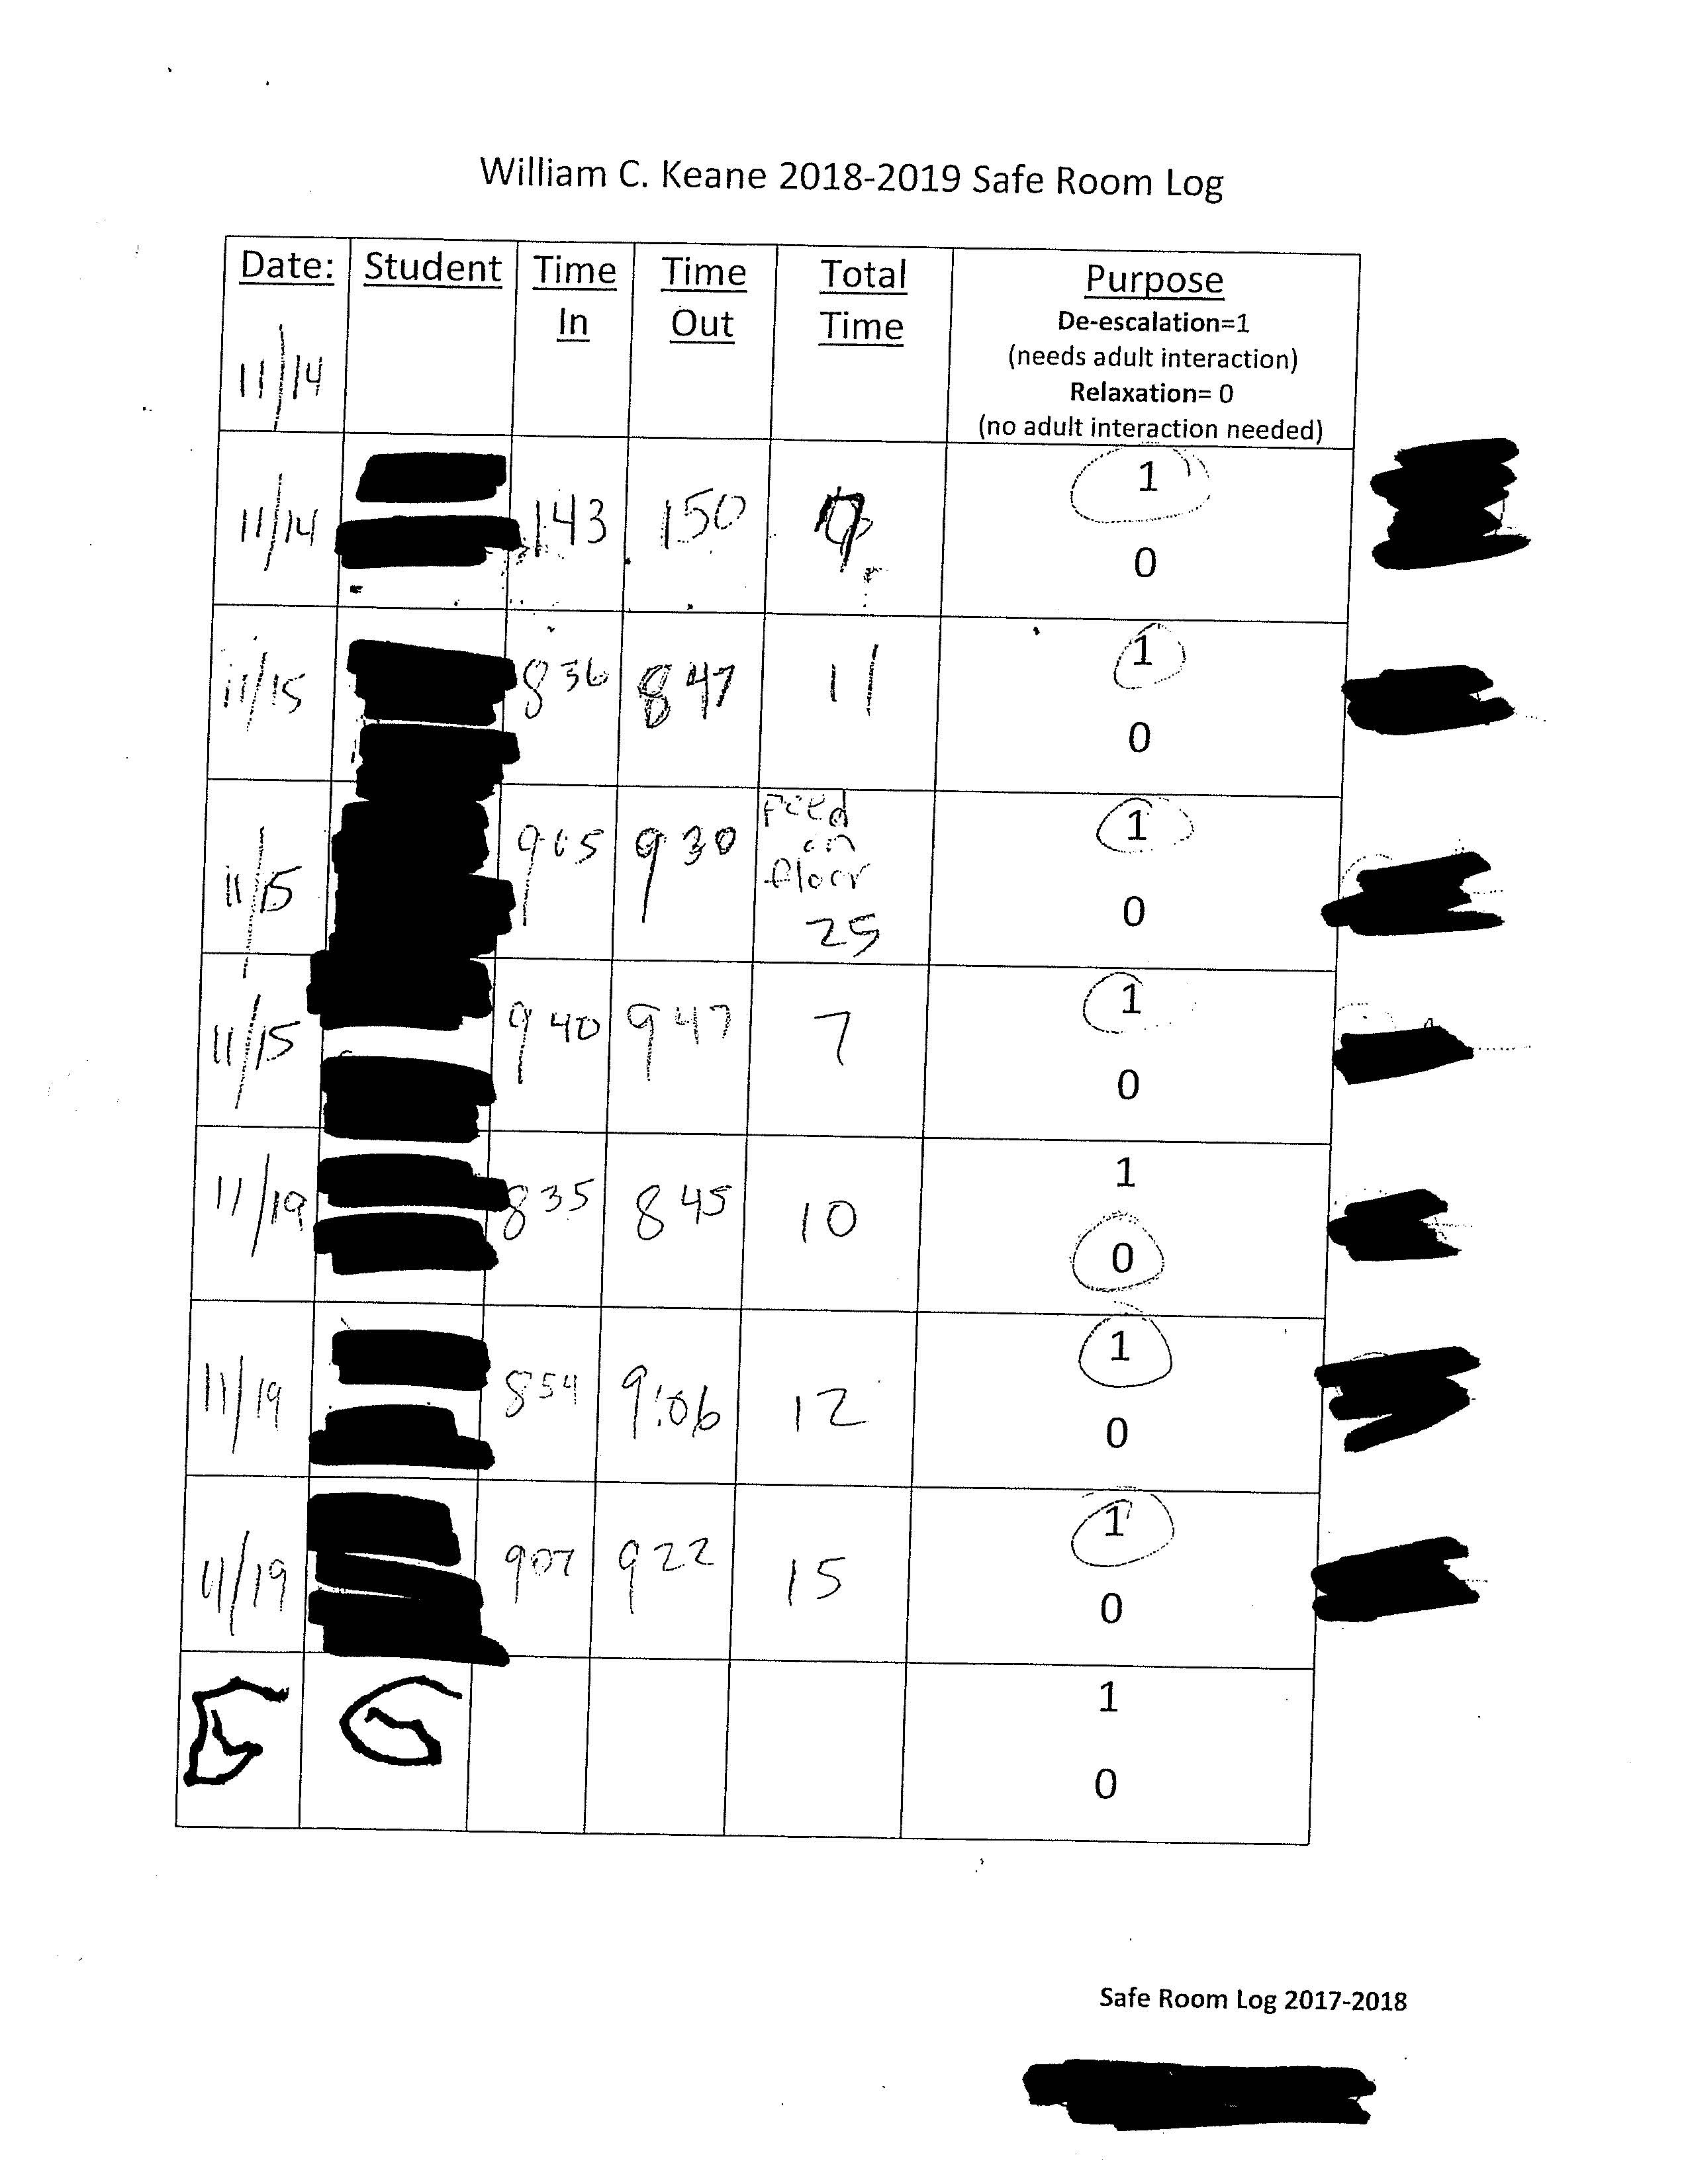 William C. Keane 2018-2019 Safe Room Log
Date: Student Time In Time Out Total Time Purpose
De-escalation=1
(needs adult interaction)
Relaxation= 0
(no adult interaction needed)
11/14
11/14 143 150 7 1
0
11/15 836 847 11 1
0
11/15 905 930 Peed on floor 25 1
0
11/15 940 947 7 1
0
11/19 835 845 10 1
0
11/19 854 9:06 12 1
0
11/19 907 922 15 1
0
1
0
Safe Room Log 2017-2018